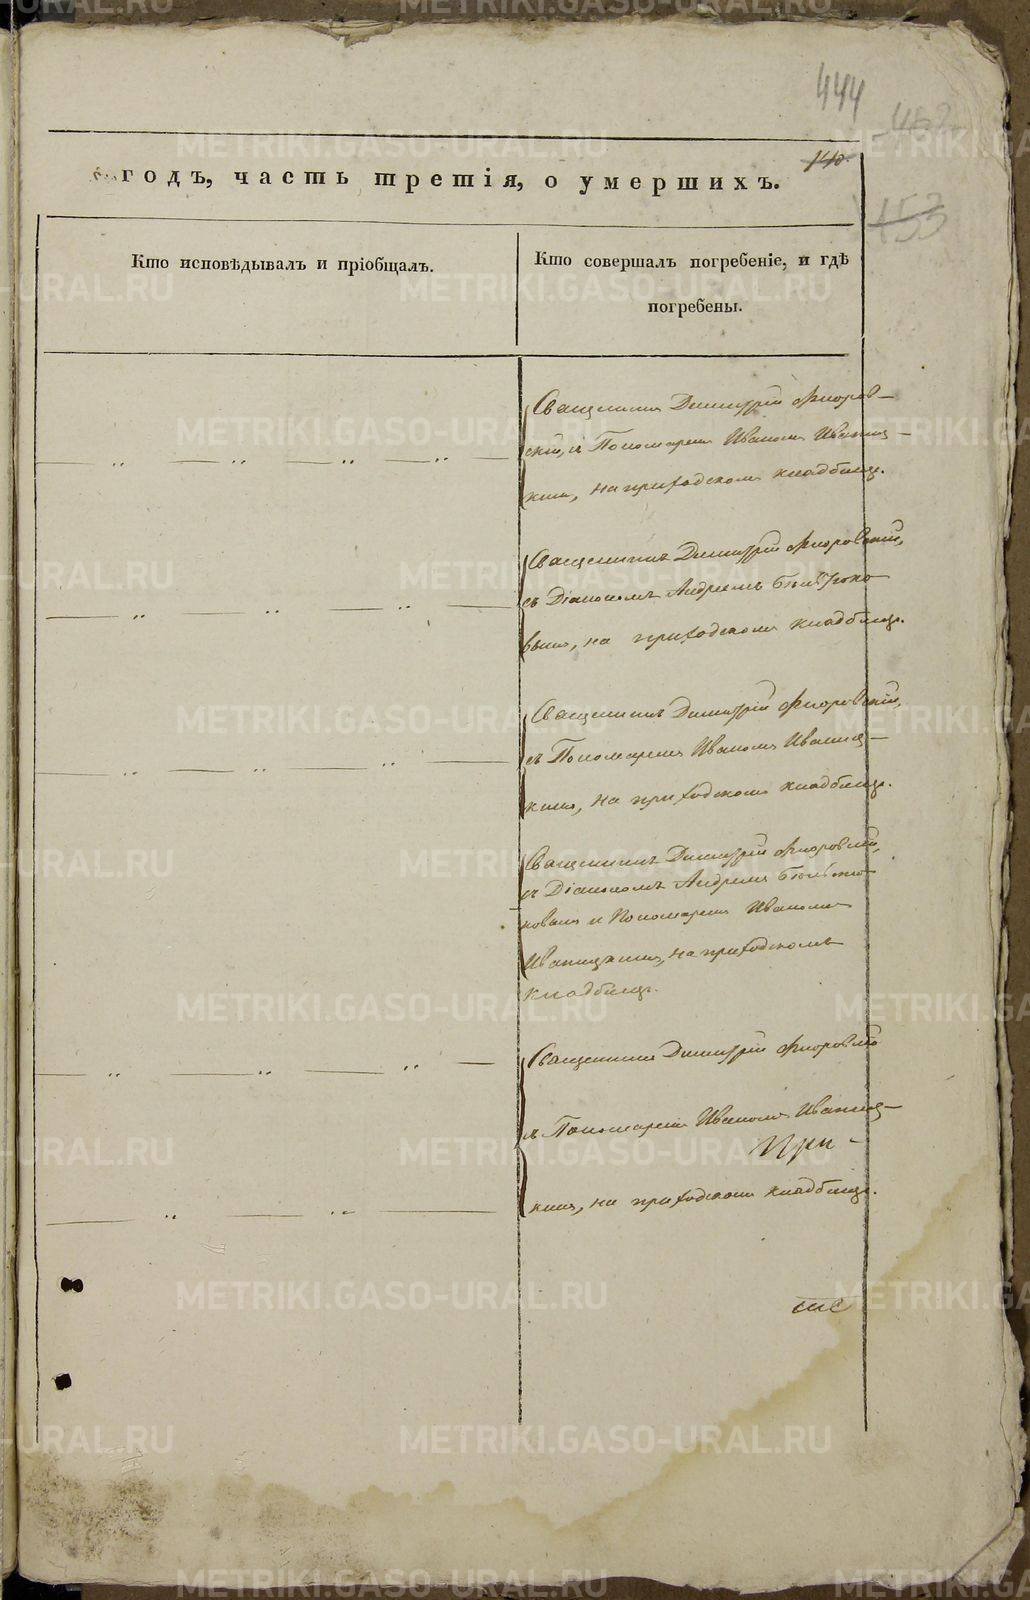 444
452
140.
годъ, часть третія, о умершихъ.
453
Кто исповѣдывалъ и пріобщалъ.
Кто совершалъ погребеніе, и гдѣ
погребены.
Священникъ Димитрій Флоров-
скій, съ Пономаремъ Иваномъ Иваниц-
кимъ, на приходскомъ кладбищѣ.
Священникъ Димитрій Флоровскій,
съ Діакономъ Андреемъ
вымъ, на приходскомъ кладбищѣ.
Священникъ Димитрій Флоровскій,
съ Пономаремъ Иваномъ Иваниц-
кимъ, на приходскомъ кладбищѣ.
Священникъ Димитрій Флоровскій,
съ Діакономъ Андреемъ
ковымъ и Пономаремъ Иваномъ
Иваницкимъ, на приходскомъ
кладбищѣ.
Священникъ Димитрій Флоровскій
съ Пономаремъ Иваномъ Иваниц-
При-
кимъ, на приходскомъ кладбищѣ.
METRIKI.GASO-URAL.RU